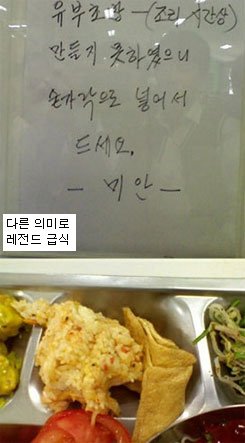 유부초밥 -(조리 시간상)
만들지 못하였으니
숟가락으로 넣어서
드세요.
- 미안 -
다른 의미로
레전드 급식